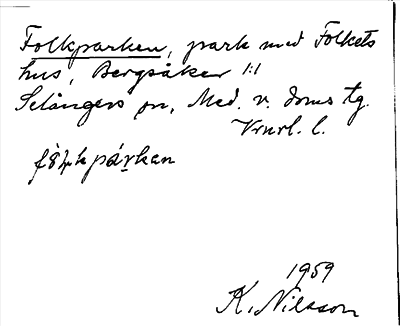 Folkparken, park med Folkets
hus, Bergsåker 1:1
Selångers sn, Med. v. doms tg.
Vnrl. l.
1959
K. Nilsson